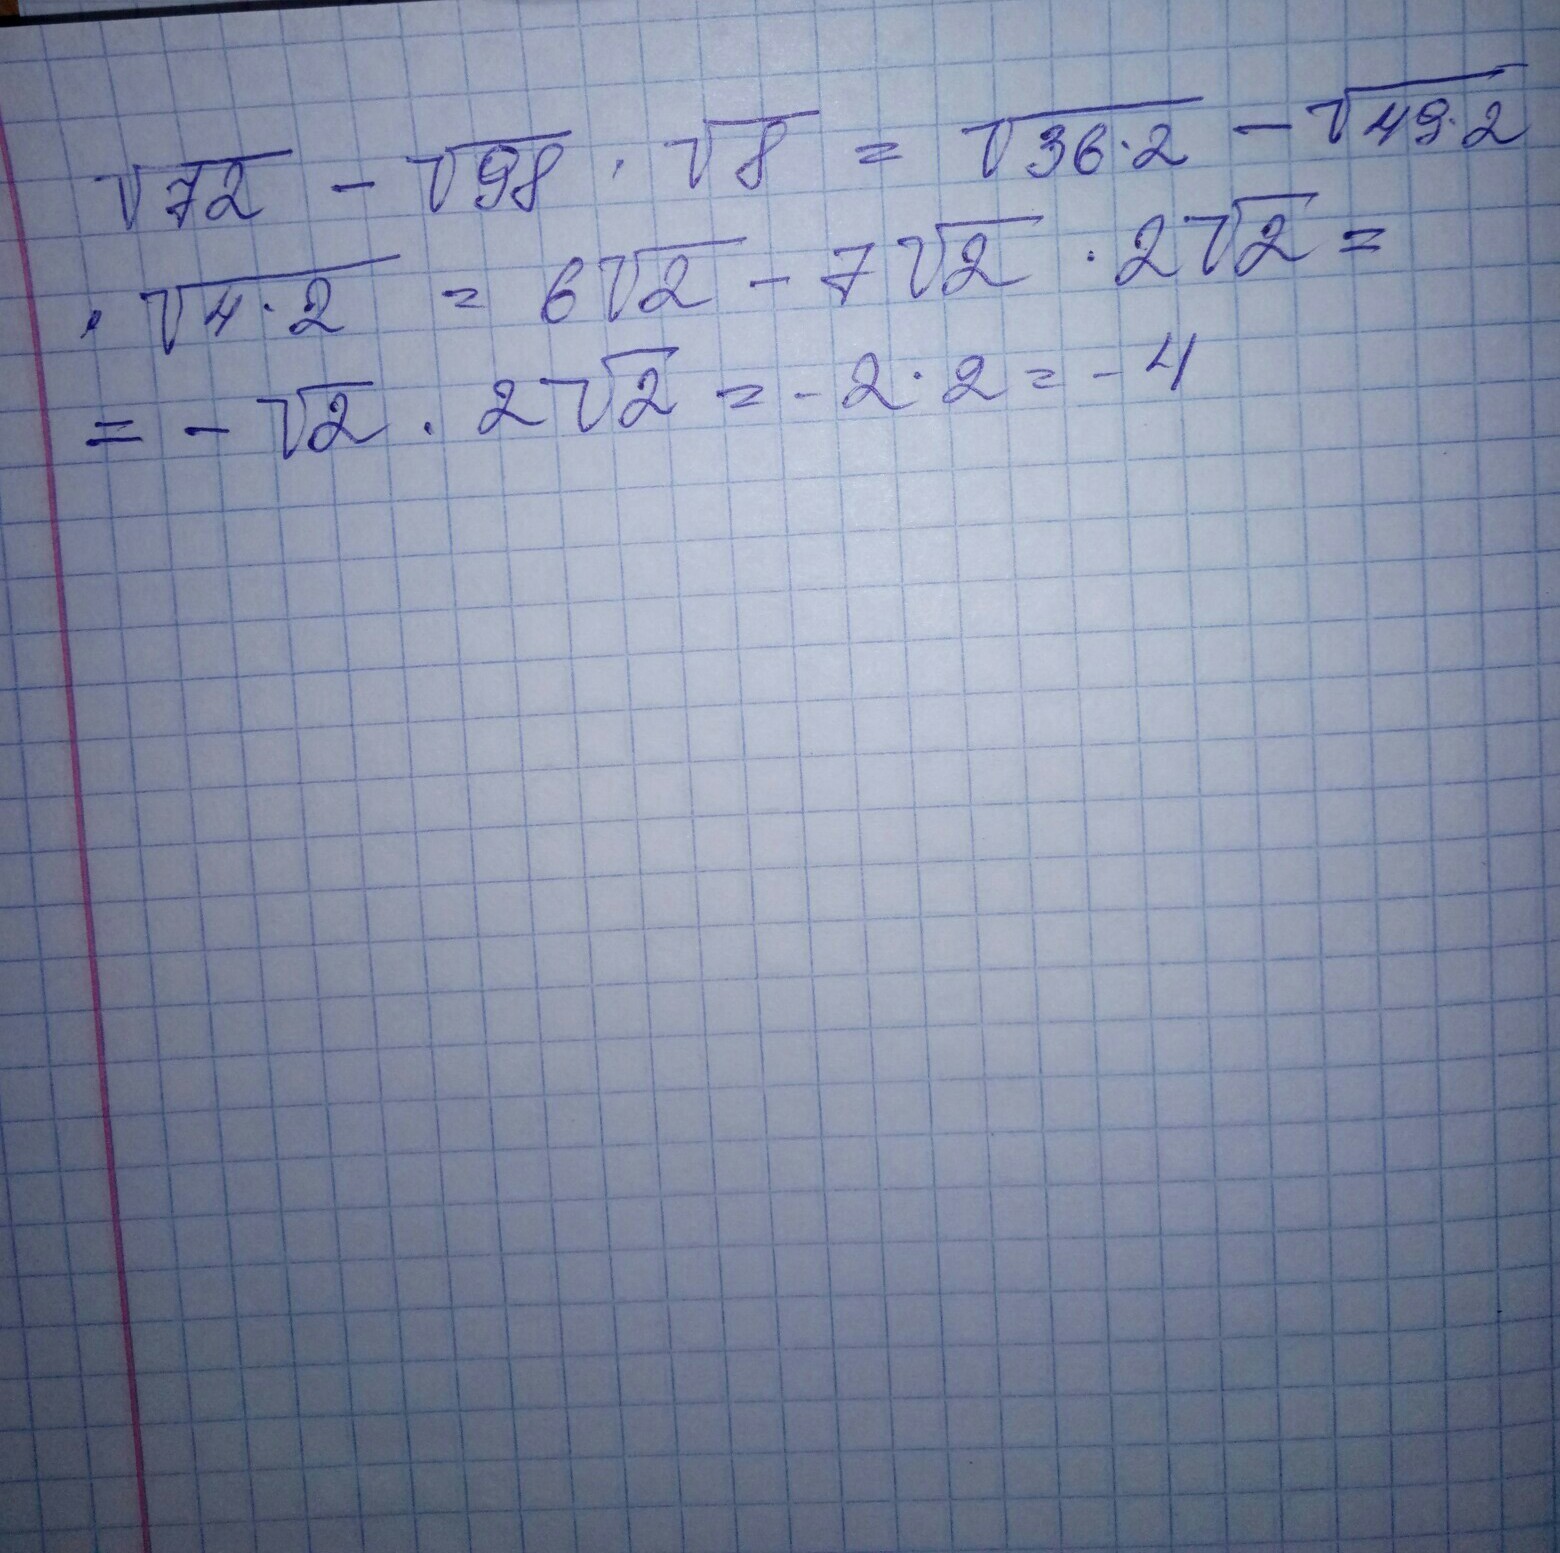 √72 - √98 · √8 = √36·2 - √49·2
· √4·2 = 6√2 - 7√2 · 2√2 =
= - √2 · 2√2 = - 2·2 = - 4